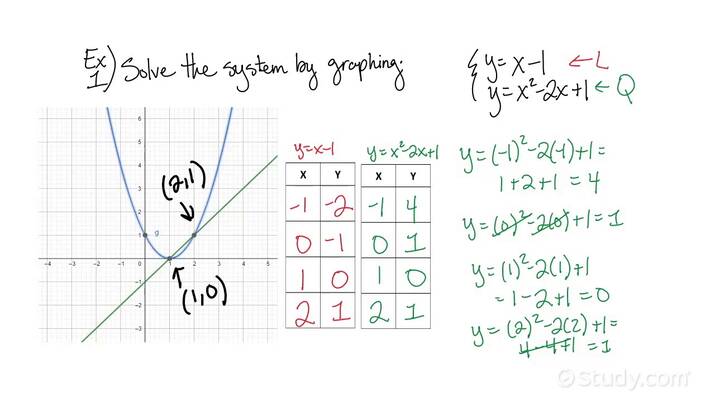 Ex 1) Solve the system by graphing:
{ y = x - 1 ← L
y = x² - 2x + 1 ← Q
6
5
4
3
2
1
0
-1
-2
-3
-4 -3 -2 -1 0 1 2 3 4 5
(2,1)
(1,0)
y=x-1
X Y
-1 -2
0 -1
1 0
2 1
y=x²-2x+1
X Y
-1 4
0 1
1 0
2 1
y=(-1)²-2(-1)+1=
1+2+1=4
y=(0)²-2(0)+1=1
y=(1)²-2(1)+1
=1-2+1=0
y=(2)²-2(2)+1=
4-4+1=1
©Study.com